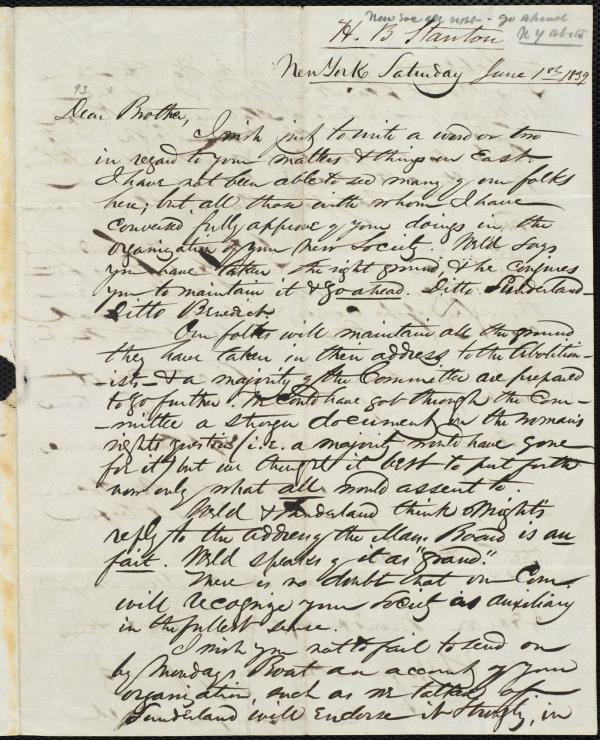 New Soc all right - go ahead
H. B Stanton
N Y abo
New York Saturday June 1st 1839
93
Dear Brother,
I wish just to write a word or two
in regard to your matters & things in East.
I have not been able to see many of our folks
here; but all those with whom I have
conversed fully approve of your doings in the
organization of your new Society. Weld says
you have taken the right ground, & he conjures
you to maintain it & go ahead. Ditto Sunderland -
Ditto Benedict.
Our folks will maintain all the ground
they have taken in their address to the Abolition-
-ists - & a majority of the Committee are prepared
to go further. We could have got through the Com-
-mittee a stronger document on the woman's
rights question (i.e. a majority would have gone
for it) but we thought it best to put forth
now only what all would assent to
Weld & Sunderland think Wright's
reply to the address of the Mass. Board is au
fait. Weld speaks of it as "grand."
There is no doubt that our Com.
will recognize your Society as auxiliary
in the fullest sense.
I wish you not to fail to send on
by Monday's Boat an account of your
organization, such as we talked of.
Sunderland will endorse it strongly, in